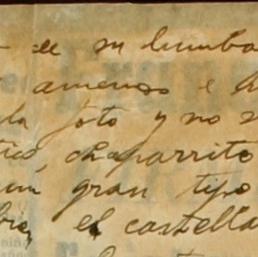 de su lumba
ameno e
la foto y no s
tico, chaparrito
un gran tipo
el castella